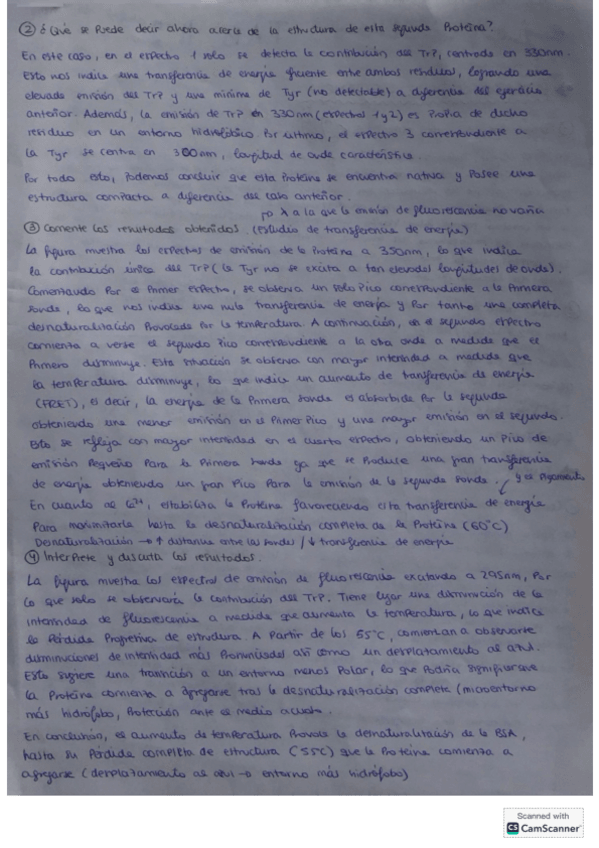 ② ¿Qué se puede decir ahora acerca de la estructura de esta segunda Proteína?
En este caso, en el espectro 1 solo se detecta la contribución del Trp, centrada en 330nm.
Esto nos indica una transferencia de energía eficiente entre ambos residuos, logrando una
elevada emisión del Trp y una mínima de Tyr (no detectable) a diferencia del ejercicio
anterior. Además, la emisión de Trp en 330nm (espectros 1 y 2) es propia de dicho
residuo en un entorno hidrofóbico. Por último, el espectro 3 correspondiente a
la Tyr se centra en 300nm, longitud de onda característica.
Por todo esto, podemos concluir que esta Proteína se encuentra nativa y posee una
estructura compacta a diferencia del caso anterior.
λ a la que la emisión de fluorescencia no varía
③ Comente los resultados obtenidos. (estudio de transferencia de energía)
La figura muestra los espectros de emisión de la Proteína a 350nm, lo que indica
la contribución única del Trp (la Tyr no se excita a tan elevadas longitudes de onda).
Comentando por el primer espectro, se observa un solo pico correspondiente a la primera
sonda, lo que nos indica una nula transferencia de energía y por tanto una completa
desnaturalización provocada por la temperatura. A continuación, en el segundo espectro
comienza a verse el segundo pico correspondiente a la otra onda a medida que el
primero disminuye. Esta situación se observa con mayor intensidad a medida que
la temperatura disminuye, lo que indica un aumento de transferencia de energía
(FRET), es decir, la energía de la primera sonda es absorbida por la segunda
obteniendo una menor emisión en el primer pico y una mayor emisión en el segundo.
Esto se refleja con mayor intensidad en el cuarto espectro, obteniendo un pico de
emisión pequeño para la primera sonda ya que se produce una gran transferencia
de energía obteniendo un gran pico para la emisión de la segunda sonda.
y el plegamiento
En cuanto al Ca²⁺, estabiliza la Proteína favoreciendo esta transferencia de energía
para maximizarla hasta la desnaturalización completa de la Proteína (60°C)
Desnaturalización → ↑ distancia entre las sondas / ↓ transferencia de energía
④ Interprete y discuta los resultados.
La figura muestra los espectros de emisión de fluorescencia excitando a 295nm, por
lo que solo se observará la contribución del Trp. Tiene lugar una disminución de la
intensidad de fluorescencia a medida que aumenta la temperatura, lo que indica
la pérdida progresiva de estructura. A partir de los 55°C, comienzan a observarse
disminuciones de intensidad más pronunciadas así como un desplazamiento al azul.
Esto sugiere una transición a un entorno menos polar, lo que podría significar que
la Proteína comienza a agregarse tras la desnaturalización completa (microentorno
más hidrófobo, protección ante el medio acuoso.
En conclusión, el aumento de temperatura provoca la desnaturalización de la BSA,
hasta su pérdida completa de estructura (55°C) que la Proteína comienza a
agregarse (desplazamiento al azul → entorno más hidrófobo)
Scanned with
CS CamScanner